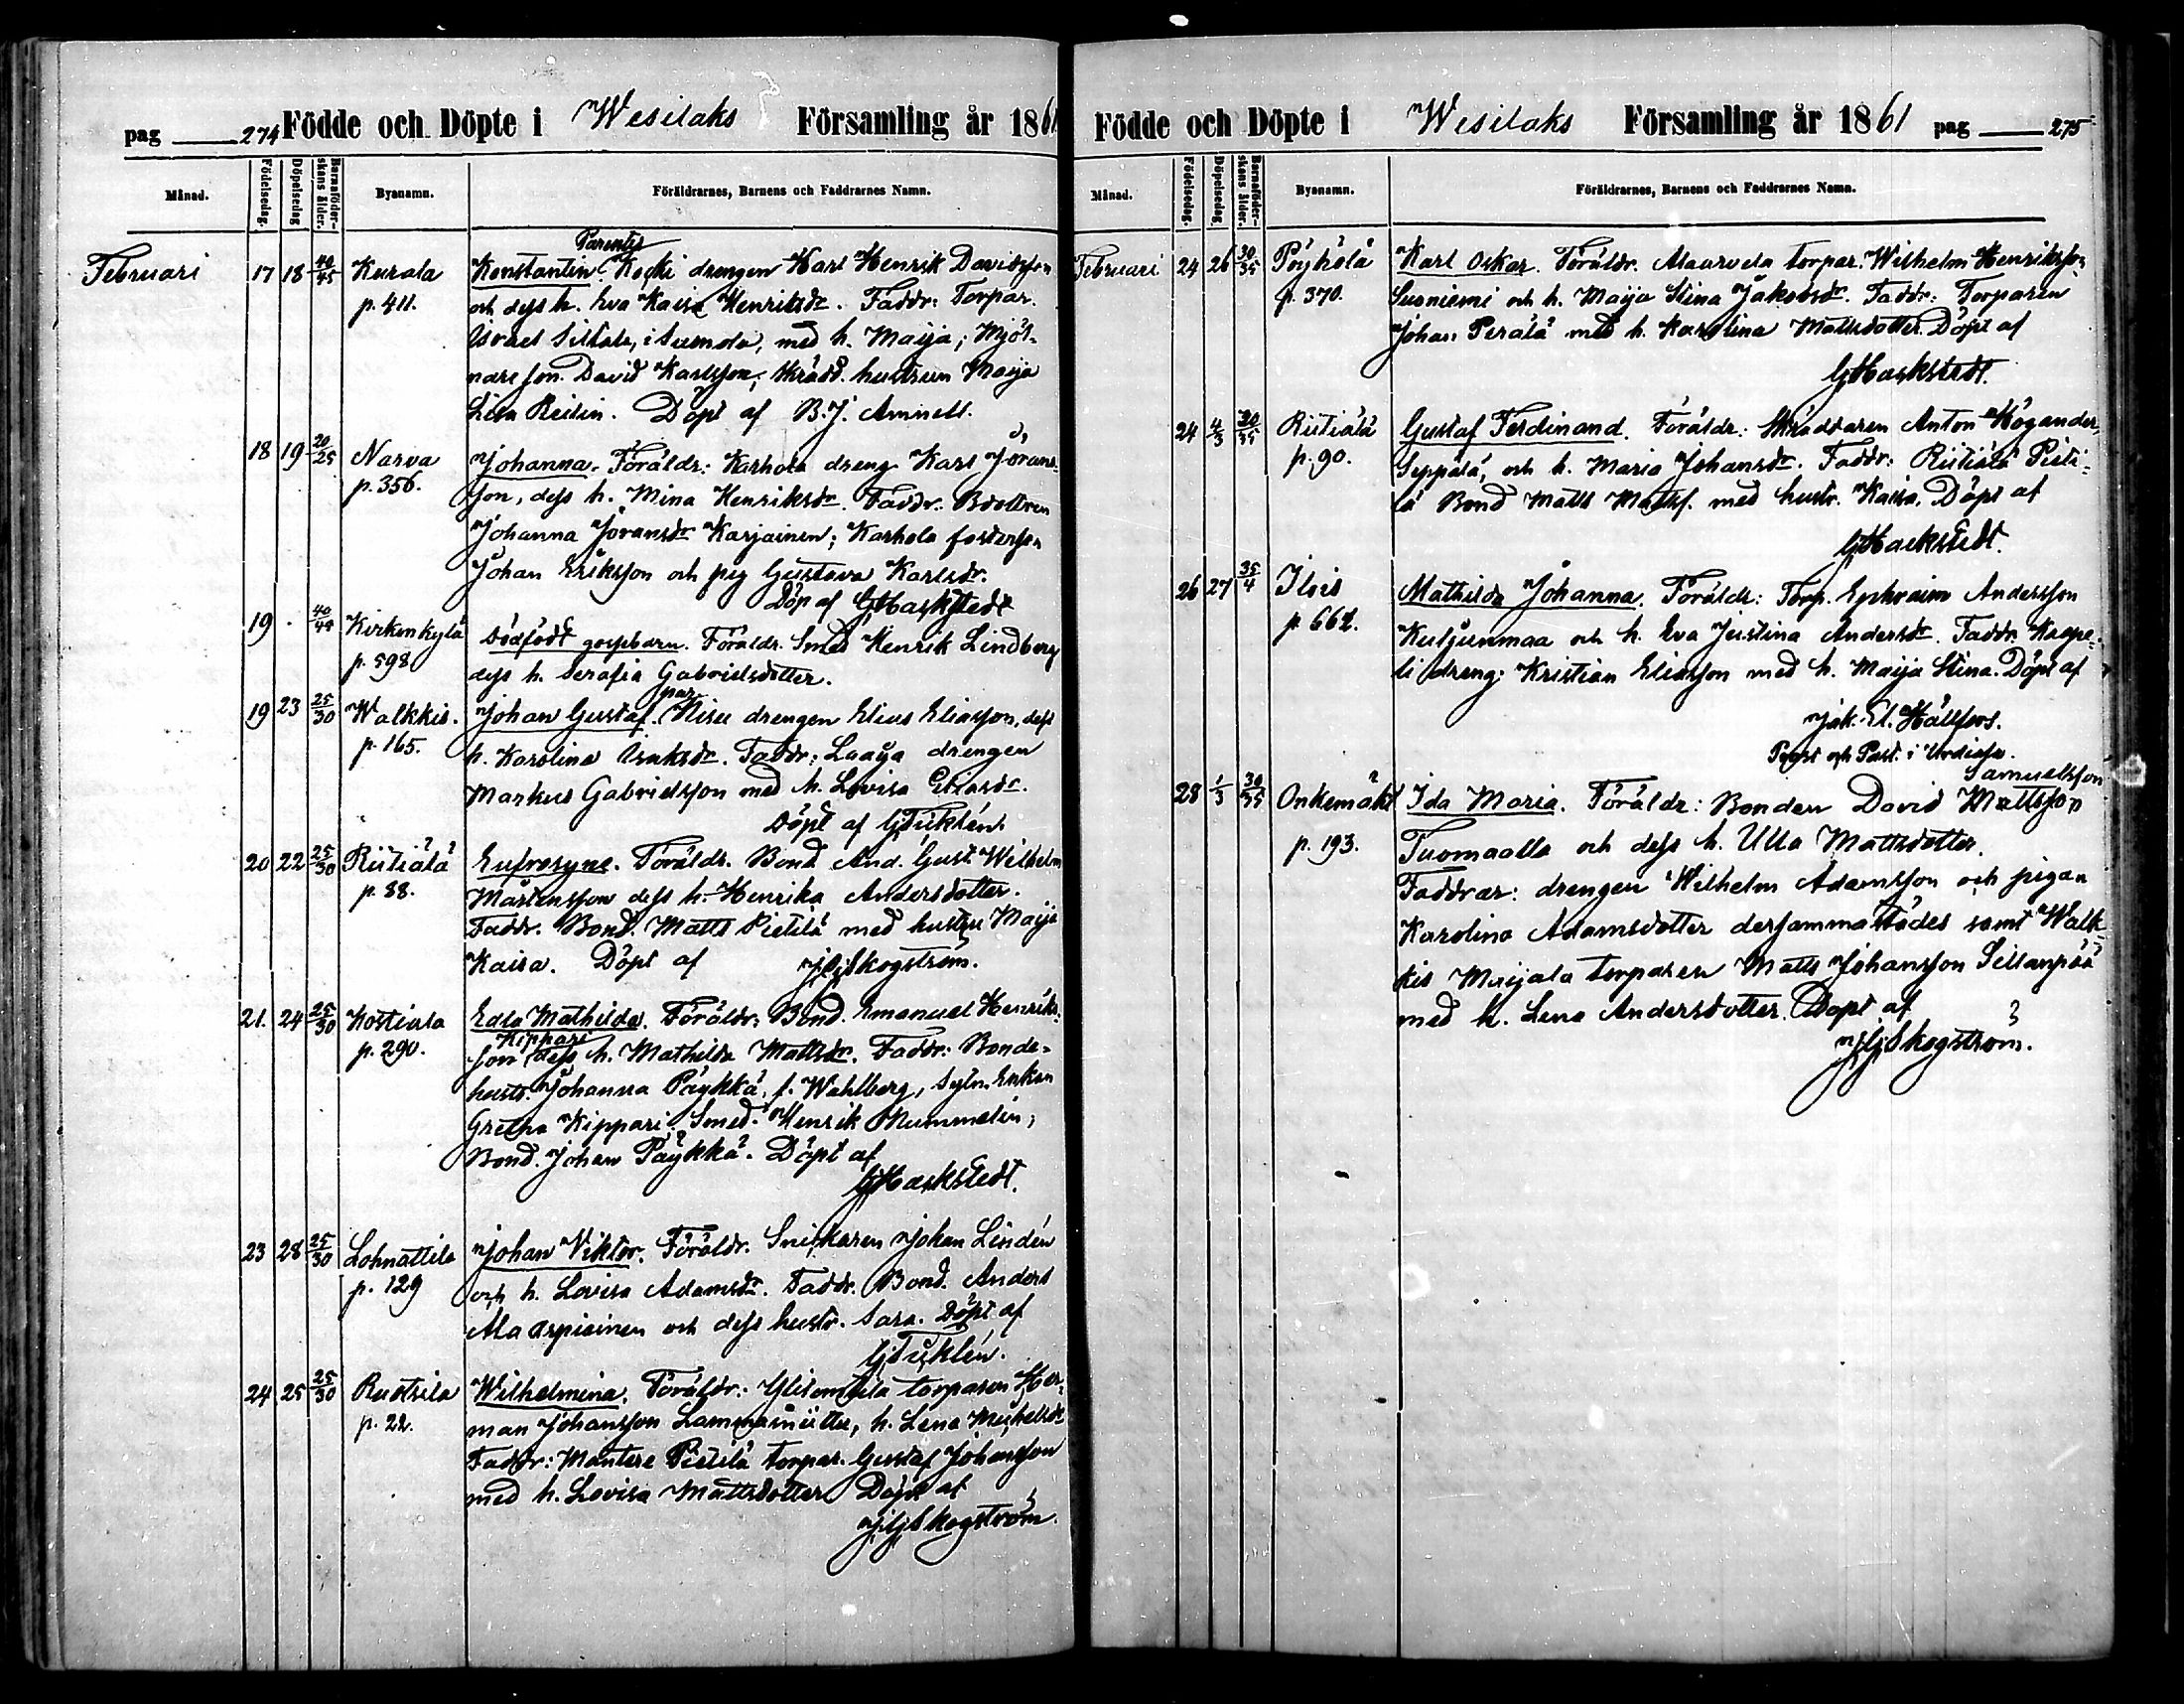 pag 274 Födde och Döpte i Wesilaks Församling år 1861
Månad. Födelsedag. Döpelsedag Barnaföder-skans ålder. Byanamn. Föräldrarnes, Barnens och Faddrarnes Namn.
Parentes
Februari 17 18 40/45 Kurala Konstantin. Kocki drengen Karl Henrik Davidsson
p. 411. och dess h. Eva Kaisa Henriksdr. Faddr: Torpar.
Israel Siltala, i Suomela, med h. Maija; Mjöl-
nare son David Karlsson; Skrädd. hustrun Maija
Lisa Reilin. Döpt af B. J. Aminell.
18 19 20/25 Narva Johanna. Föräldr: Karhola dreng Karl Jörans-
p. 356. son, dess h. Mina Henriksdr. Faddr: Bdottren
Johanna Jöransdr Karjainen; Karhola fosterson
Johan Eriksson och pig Gustava Karlsdr.
Döp af G Hackstedt
19 . 40/44 Kirkonkylä Dödfödt gossebarn. Föräldr. Smed Henrik Lindberg
p. 598 dess h. Serafia Gabrielsdotter.
par
19 23 25/30 Walkkis. Johan Gustaf. Hiru drengen Elias Eliasson, dess
p. 165. h. Karolina Isaksdr. Faddr: Laaja drengen
Markus Gabrielsson med h. Lovisa Eliasdr.
Döpt af G Tuklén.
20 22 25/30 Riitiälä Eufrosyne. Föräldr. Bond And. Gust. Wilhelm
p. 88. Mårtensson dess h. Henrika Andersdotter.
Faddr. Bond. Matts Pietilä med hustru Maija
Kaisa. Döpt af J G Skogström.
21. 24 25/30 Kostiala Edla Mathilda. Föräldr: Bond. Emanuel Henriks-
Kippari
p. 290. son dess h. Mathilda Mattsdr. Faddr: Bonde-
hustr. Johanna Päykkä, f. Wahlberg, Sytn. Enkan
Gretha Kippari; Smed. Henrik Nummelin;
Bond. Johan Päykkä. Döpt af
G Hackstedt.
23 28 25/30 Lohnattila Johan Viktor. Föräldr. Snickaren Johan Lindén
p. 129 och h. Lovisa Adamsdr. Faddr. Bond. Anders
Ala Arpiainen och dess hustr. Sara. Döpt af
G Tuklén.
24 25 25/30 Ruotsila Wilhelmina. Föräldr: torparen Her-
p. 22. man Johansson Lammasniittu, h. Lena Michelsdr
Faddr: Mantere Pietilä torpar. Gustaf Johansson
med h. Lovisa Mattsdotter Döpt af
J G Skogström.
Födde och Döpte i Wesilaks Församling år 1861 pag 275
Månad. Födelsedag. Döpelsedag. Barnaföder-skans ålder. Byanamn. Föräldrarnes, Barnens och Faddrarnes Namn.
Februari 24 26 30/35 Pöyhölä Karl Oskar. Föräldr. Alaurvela torpar. Wilhelm Henriksson
p. 370. Susniemi och h. Maija Stina Jakobsdr. Faddr: Torparen
Johan Perälä med h. Karolina Mattsdotter. Döpt af
G Hackstedt.
24 4/3 30/35 Riitiälä Gustaf Ferdinand. Föräldr: Skräddaren Anton Högander,
p. 90. Seppälä, och h. Maria Johansdr. Faddr: Riitiälä Pieti-
lä Bond Matts Mattss. med hustr. Kaisa. Döpt af
G Hackstedt.
26 27 35/4 Ilois Mathilda Johanna. Föräldr: Torp. Ephraim Andersson
p 662. Kuljunmaa och h. Eva Justina Andersdr. Faddr. Kape-
li dreng: Kristian Eliasson med h. Maija Stina. Döpt af
Jak. El. Hällfors.
Prost och Past. i Urdiala.
Samuelsson
28 1/3 30/35 Onkemäki Ida Maria. Föräldr: Bonden David Mattsson
p. 193. Tuomaalla och dess h. Ulla Mattsdotter.
Faddrar: drengen Wilhelm Adamsson och pigan
Karolina Adamsdotter dersammastädes samt Walk-
kis Maijala torparen Matts Johansson Sillanpää
med h. Lena Andersdotter. Döpt af
J G Skogström.